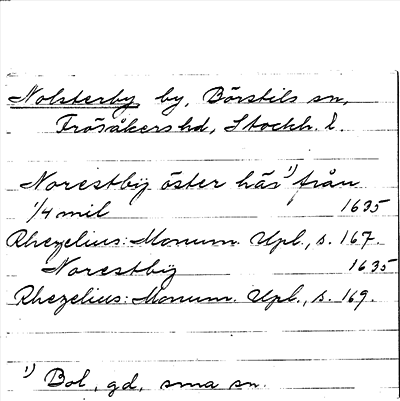 Nolsterby by, Börstils sn,
Frösåkers hd, Stockh. l.
Norestbÿ öster här ¹⁾ från
1/4 mil 1635
Rhezelius: Monum. Upl., s. 167.
Norestbÿ 1635
Rhezelius: Monum. Upl., s. 169.
¹⁾ Bol, gd, sma sn.